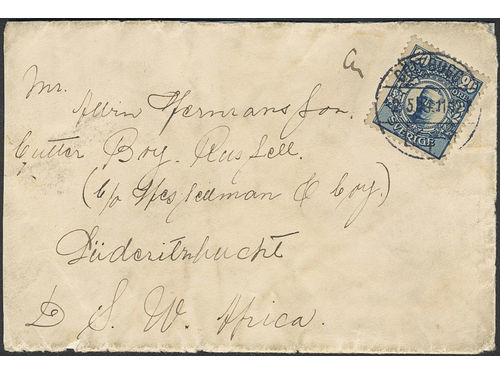 Mr.
Hermansson.
Cutter Boy. Russell.
(c/o Wesselman & Coy.)
Lüderitzbucht
D S. W. Africa.
SVERIGE